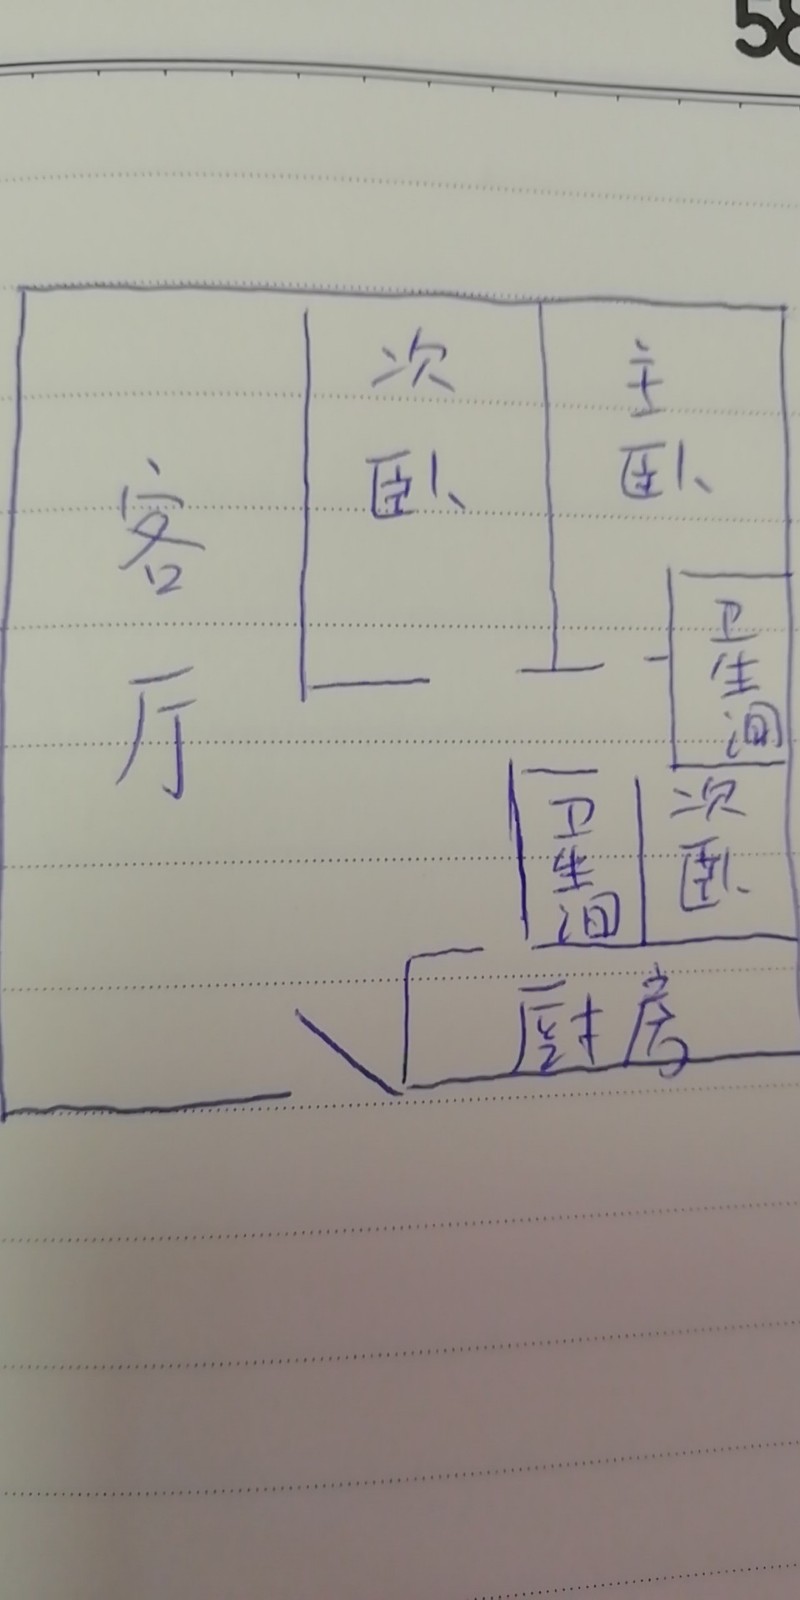 58
次卧
主卧
客厅
卫生间
卫生间
次卧
厨房